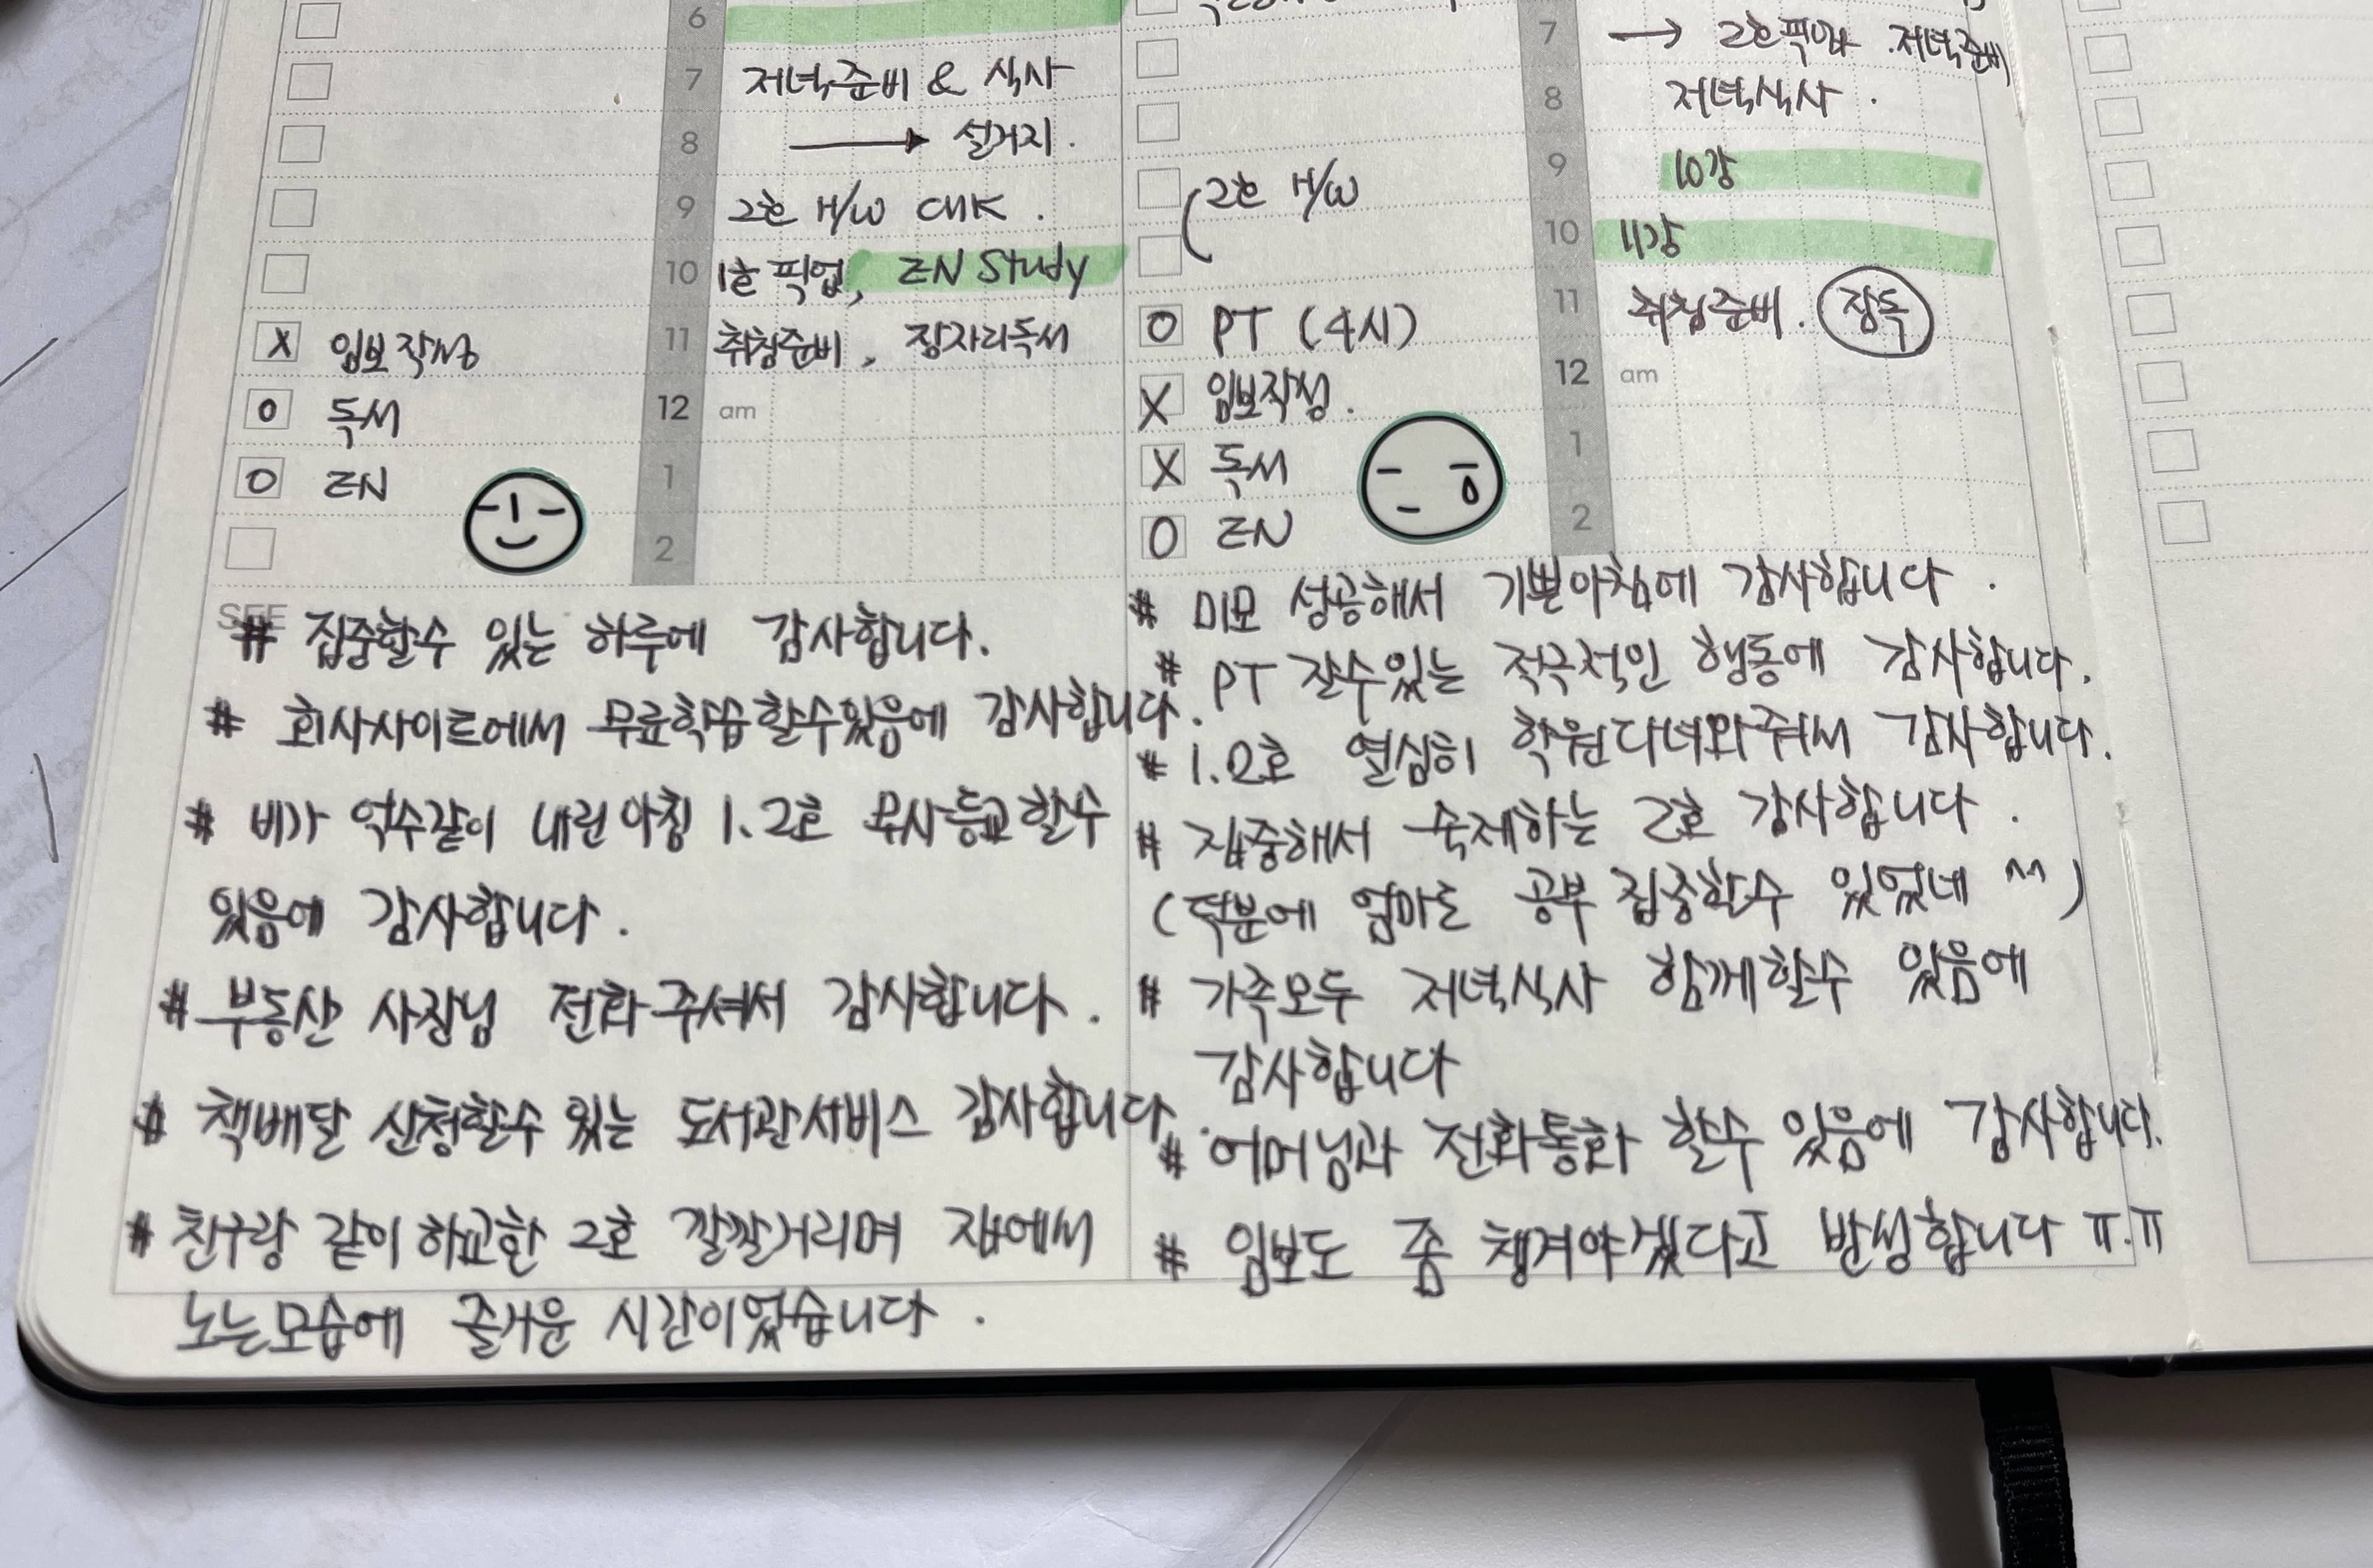 6
7 저녁준비 & 식사
8 → 설거지.
9 2호 H/W CHK.
10 1호 픽업, EN Study
X 임보작성
11 취침준비, 잠자리독서
O 독서
12 am
O EN
1
2
SEE
# 집중할수 있는 하루에 감사합니다.
# 회사사이트에서 무료학습할수있음에 감사합니다.
# 비가 억수같이 내린아침 1.2호 무사등교할수
있음에 감사합니다.
# 부동산 사장님 전화주셔서 감사합니다.
# 책배달 신청할수 있는 도서관서비스 감사합니다.
# 친구랑 같이 하교한 2호 깔깔거리며 집에서
노는모습에 즐거운 시간이었습니다.
7 → 2호픽업 . 저녁준비
8 저녁식사.
2호 H/W
9 10강
10 11강
O PT (4시)
11 취침준비. 잠독
X 임보작성.
12 am
X 독서
1
O EN
2
# 미모 성공해서 기쁜아침에 감사합니다.
# PT 갈수있는 적극적인 행동에 감사합니다.
# 1.2호 열심히 학원다녀와줘서 감사합니다.
# 집중해서 숙제하는 2호 감사합니다.
(덕분에 엄마도 공부 집중할수 있었네 ^^)
# 가족모두 저녁식사 함께할수 있음에
감사합니다
# 어머님과 전화통화 할수 있음에 감사합니다.
# 임보도 좀 챙겨야겠다고 반성합니다 ㅠ.ㅠ